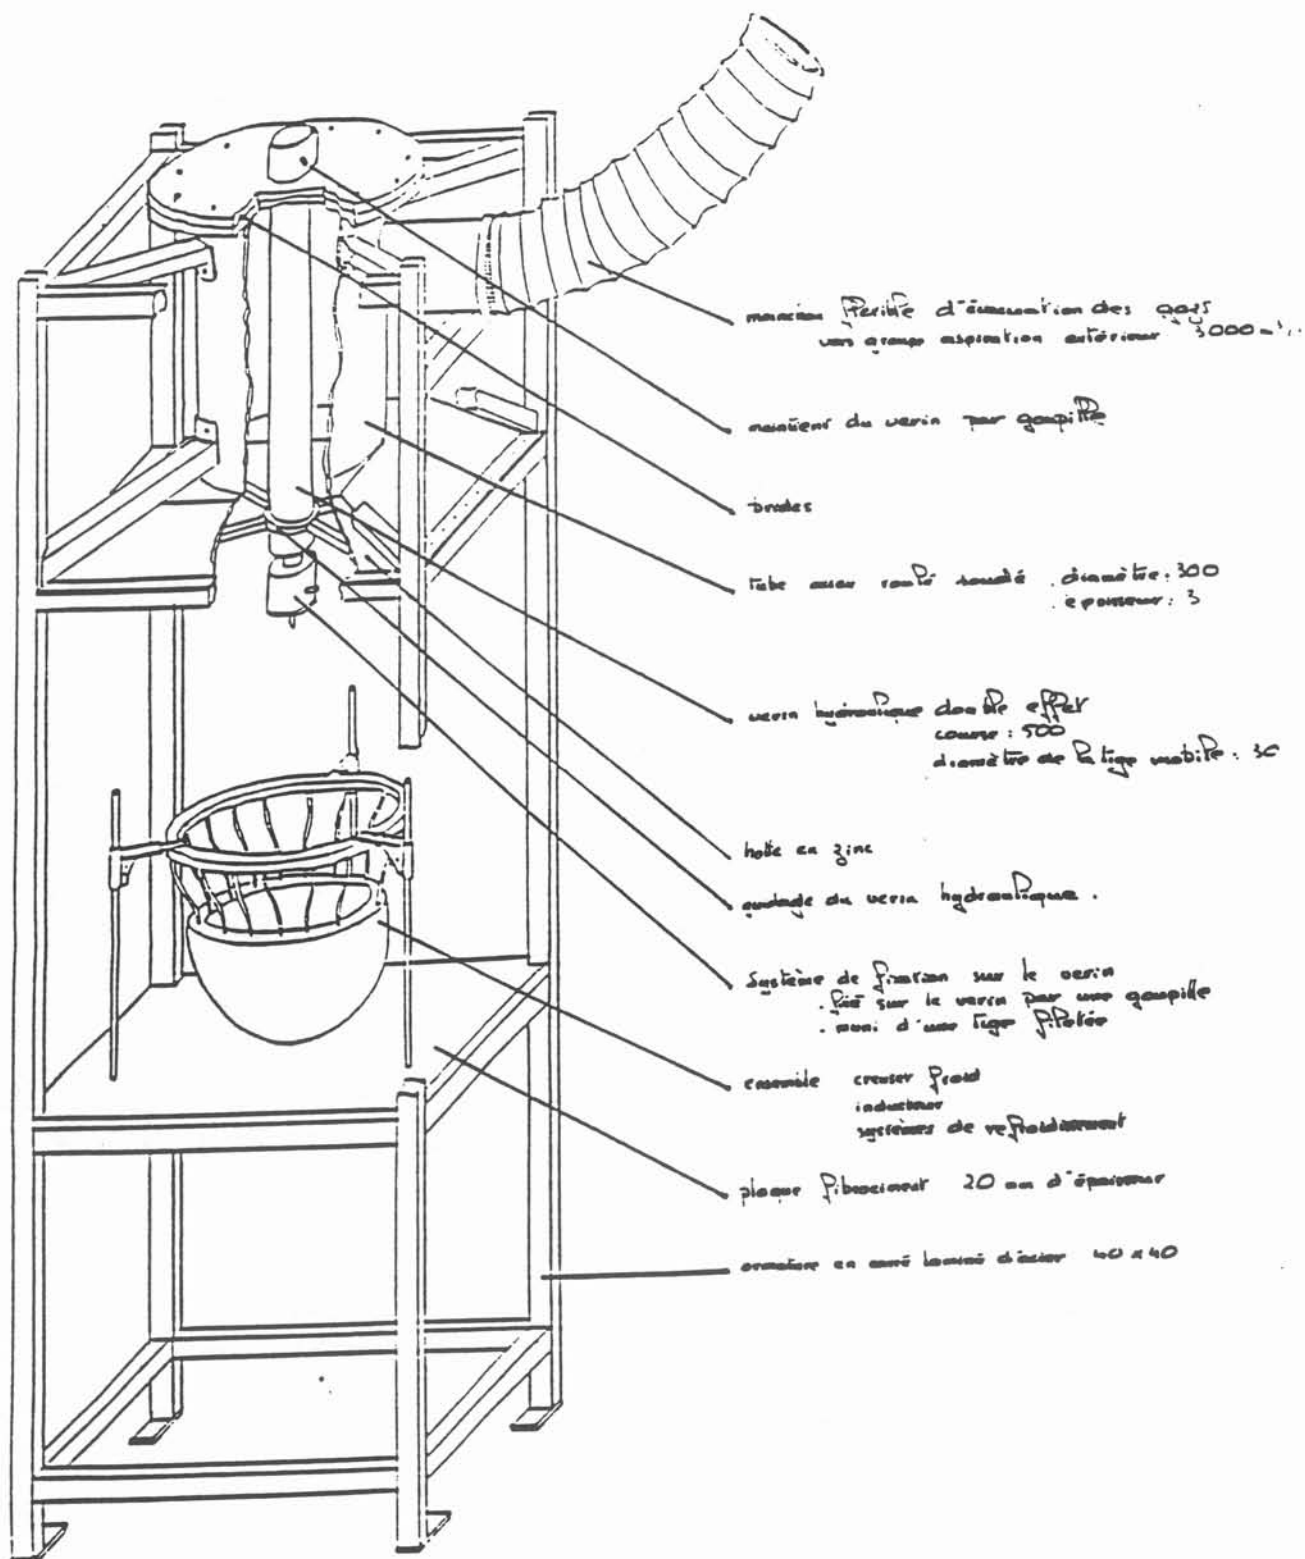 manchon flexible d'évacuation des gazs
vers groupe aspiration extérieur 3000 m³/
maintient du verin par goupille
brides
tube acier roulé soudé . diamètre : 300
. epaisseur : 3
verin hydraulique double effet
course : 500
diamètre de la tige mobile : 30
hotte en zinc
guidage du verin hydraulique .
système de fixation sur le verin
. fixé sur le verin par une goupille
. muni d'une tige filetée
ensemble creuset froid
inducteur
systèmes de refroidissement
plaque fibrociment 20 mm d'épaisseur
armature en carré laminé d'acier 40 x 40